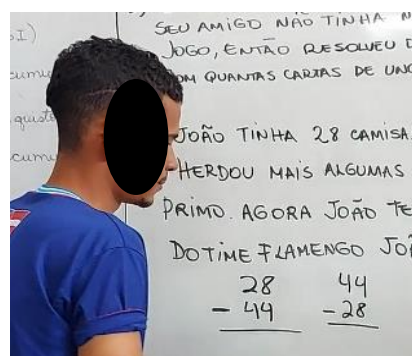 SEU AMIGO NÃO TINHA
JOGO, ENTÃO RESOLVEU
QUANTAS CARTAS DE UNO
JOÃO TINHA 28
HERDOU MAIS ALGUMAS
PRIMO. AGORA JOÃO
DO TIME FLAMENGO
28 44
- 44 - 28